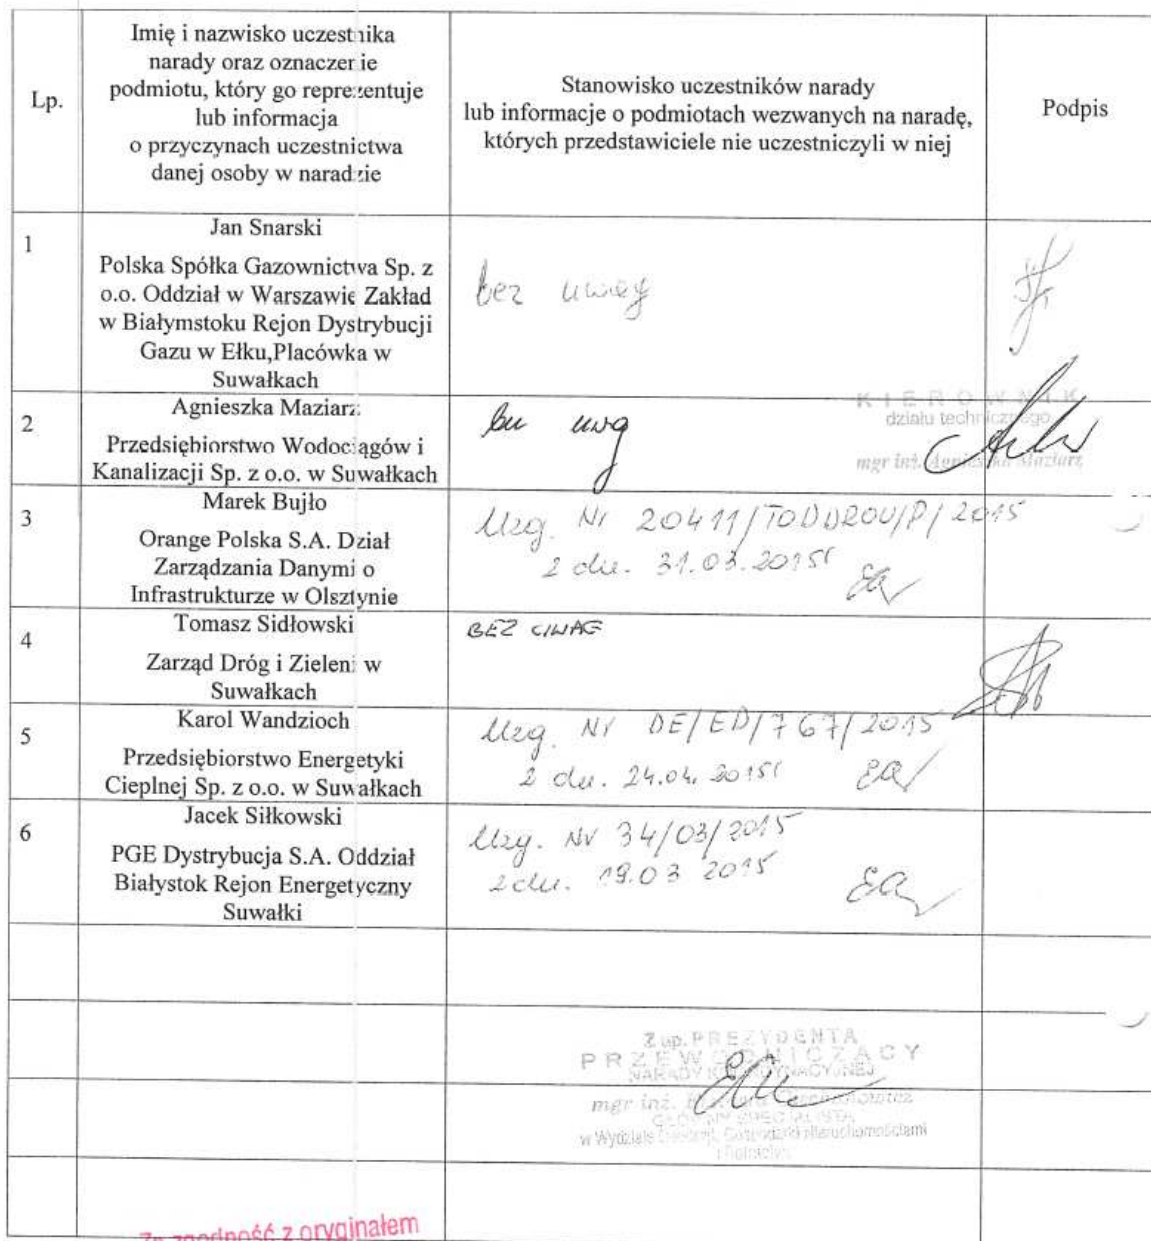 Lp.
Imię i nazwisko uczestnika
narady oraz oznaczenie
podmiotu, który go reprezentuje
lub informacja
o przyczynach uczestnictwa
danej osoby w naradzie
Stanowisko uczestników narady
lub informacje o podmiotach wezwanych na naradę,
których przedstawiciele nie uczestniczyli w niej
Podpis
1
Jan Snarski
Polska Spółka Gazownictwa Sp. z
o.o. Oddział w Warszawie Zakład
w Białymstoku Rejon Dystrybucji
Gazu w Ełku,Placówka w
Suwałkach
bez uwag
2
Agnieszka Maziarz
Przedsiębiorstwo Wodociągów i
Kanalizacji Sp. z o.o. w Suwałkach
bez uwag
KIEROWNIK
działu technicznego
mgr inż. Agnieszka Maziarz
3
Marek Bujło
Orange Polska S.A. Dział
Zarządzania Danymi o
Infrastrukturze w Olsztynie
Uzg. Nr 20411/TODDROU/P/2015
z dn. 31.03.2015r
4
Tomasz Sidłowski
Zarząd Dróg i Zieleni w
Suwałkach
BEZ UWAG
5
Karol Wandzioch
Przedsiębiorstwo Energetyki
Cieplnej Sp. z o.o. w Suwałkach
Uzg. Nr DE/ED/767/2015
z dn. 24.04.2015r
6
Jacek Siłkowski
PGE Dystrybucja S.A. Oddział
Białystok Rejon Energetyczny
Suwałki
Uzg. Nr 34/03/2015
z dn. 19.03 2015
Z up. PREZYDENTA
PRZEWODNICZĄCY
NARADY KOORDYNACYJNEJ
mgr inż.
GŁÓWNY SPECJALISTA
w Wydziale Geodezji, Gospodarki Nieruchomościami
i Rolnictwa
Za zgodność z oryginałem